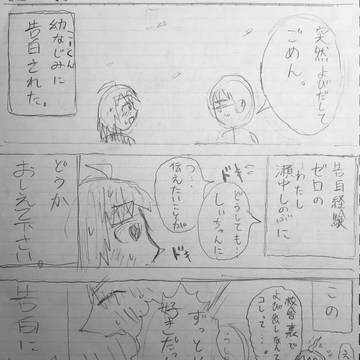 突然よびだして
ごめん。
こーくん
幼なじみに
告白された。
告白経験
ゼロの
わたし
瀬中しのぶに
ドキ
どうしても…
しぃちゃんに
つ…
伝えたいことが
ドキ
どうか
おしえて下さい。
この
校舎裏で
よび出しなんて
コレって…
ずっと
好きだっ
告白に